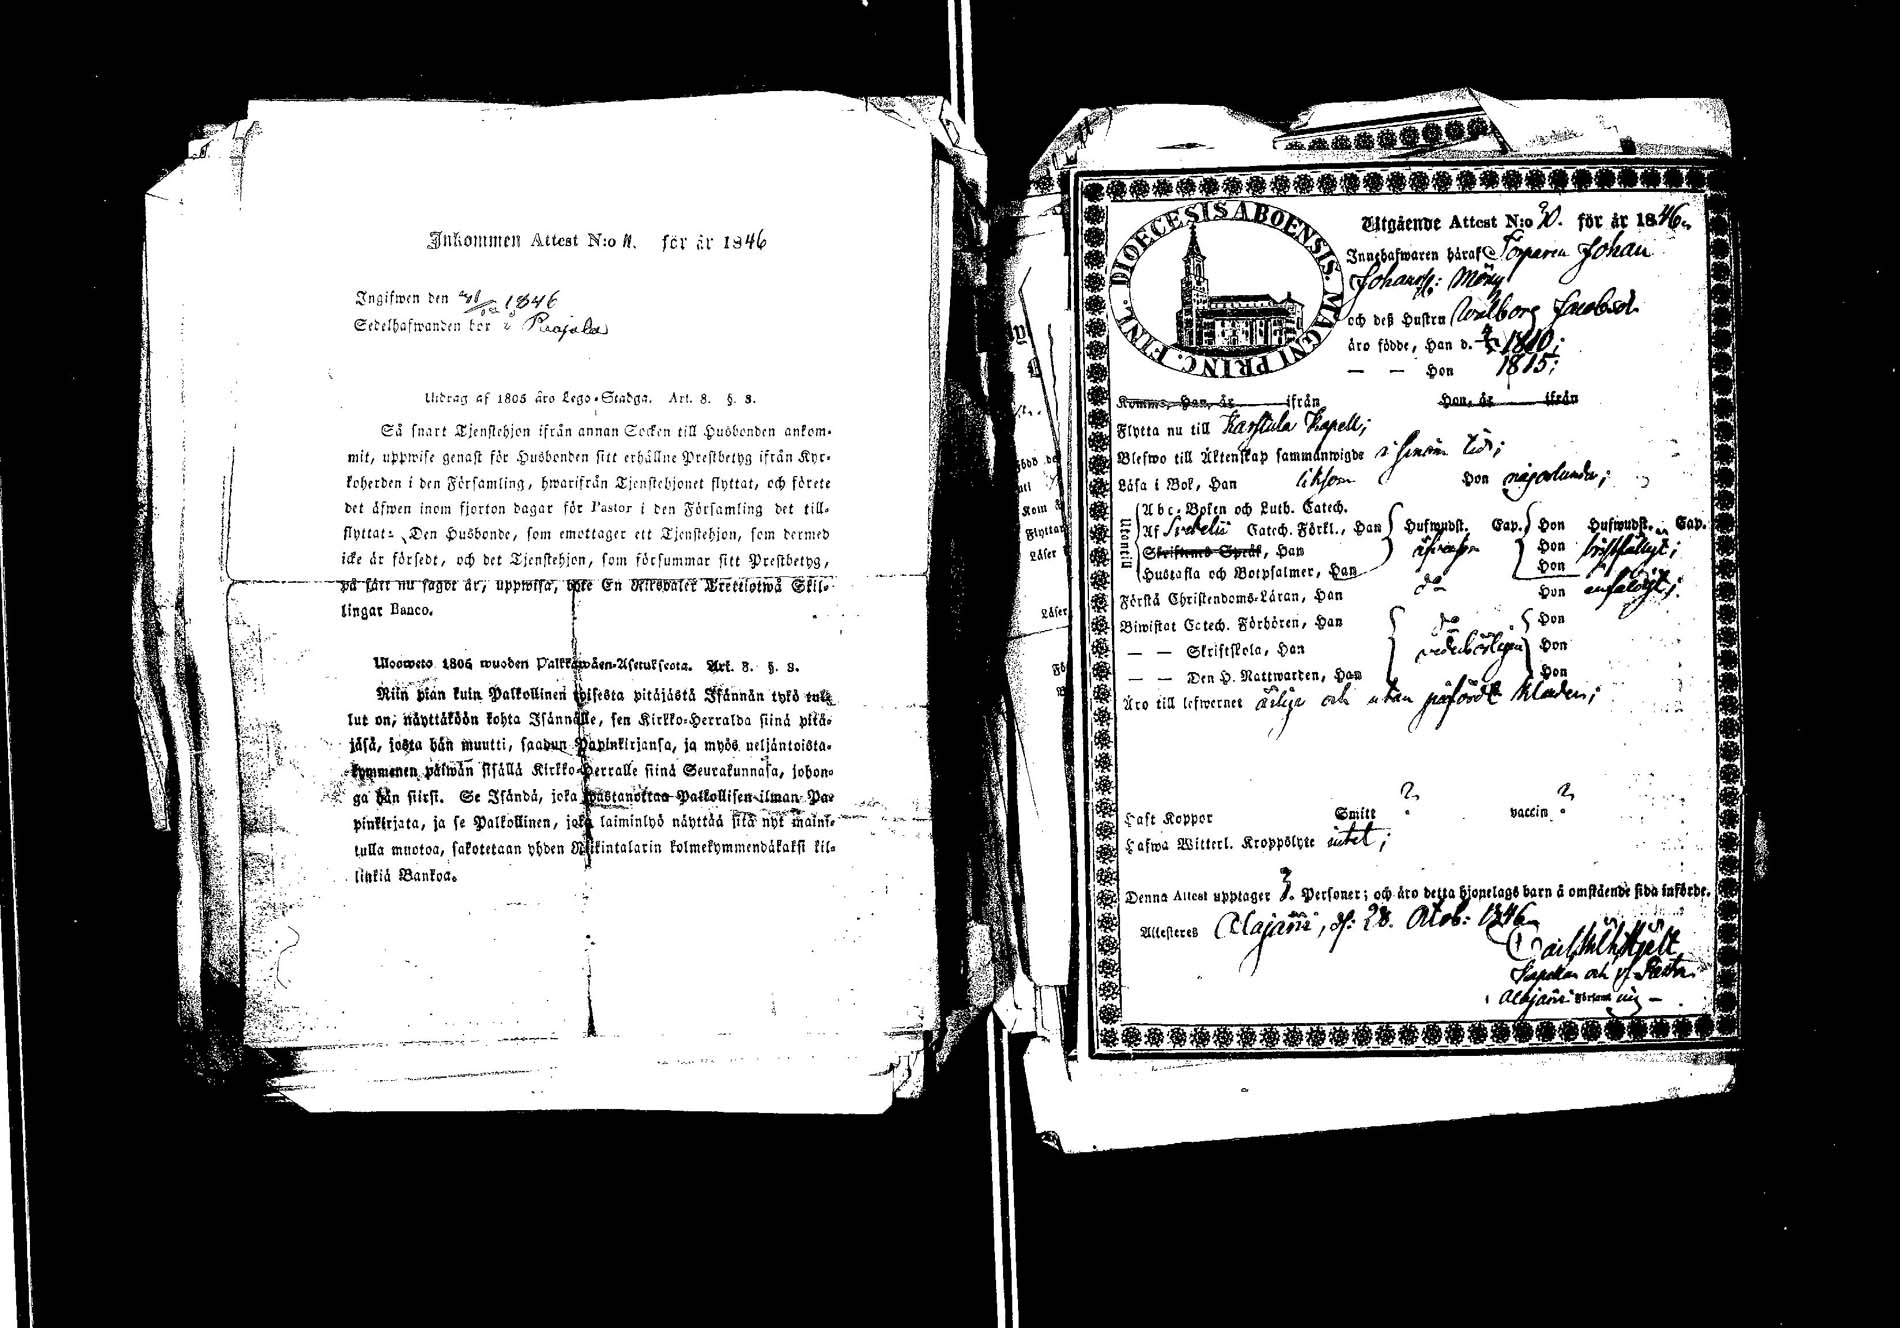 Inkommen Attest N:o 11. för år 1846
Ingifwen den 1846
Sedelhafwanden bor i Pajala
Utdrag af 1805 års Lego-Stadga. Art. 8. §. 3.
Så snart Tjenstehjon ifrån annan Socken till Husbonden ankom-
mit, uppwise genast för Husbonden sitt erhållne Prestbetyg ifrån Kyr-
koherden i den Församling, hwarifrån Tjenstehjonet flyttat, och förete
det äfwen inom fjorton dagar för Pastor i den Församling det till-
flyttat. Den Husbonde, som emottager ett Tjenstehjon, som dermed
icke är försedt, och det Tjenstehjon, som försummar sitt Prestbetyg,
på sätt nu sagdt är, uppwisa, böte En Riksdaler Trettiotwå Skil-
lingar Banco.
Ulosweto 1805 wuoden Palkkawäen-Asetuksesta. Art. 8. §. 3.
Niin pian kuin Palkollinen toisesta pitäjästä Isännän tykö tul-
lut on, näyttäköön kohta Isännälle, sen Kirkko-Herralda siinä pitä-
jäsä, josta hän muutti, saadun Papinkirjansa, ja myös neljäntoista-
kymmenen päiwän sisällä Kirkko-Herralle siinä Seurakunnasa, johon-
ga hän siirsi. Se Isändä, joka wastanottaa Palkollisen ilman Pa-
pinkirjata, ja se Palkollinen, joka laiminlyö näyttää sitä nyt maini-
tulla muotoa, sakotetaan yhden Riikintalarin kolmekymmendäkaksi kil-
linkiä Bankoa.
DIOECESIS ABOENSIS. MAGNI PRINC. FINL.
Utgående Attest N:o 30. för år 1846.
Innehafwaren häraf Torparen Johan
Johanss: Möny
och deß Hustru Walborg Jacobsd.
äro födde, Han d. 1810;
— — Hon 1815;
Komms, Han, år ifrån Hon, år ifrån
Flytta nu till Karstula Kapell;
Blefwo till Äktenskap sammanwigde i sinom tid;
Läsa i Bok, Han liksom Hon någorlunda;
Utontill
Abc-Boken och Luth. Catech.
Af Svebelii Catech. Förkl., Han Hufwudst. Cap. Hon Hufwudst. Cap.
Skriftenes Språk, Han äfwensom Hon bristfälligt;
Hustafla och Botpsalmer, Han Hon
Förstå Christendoms-Läran, Han do Hon enfaldigt;
Biwistat Catech. Förhören, Han do Hon
— — Skriftskola, Han wederbörligen Hon
— — Den H. Nattwarden, Han Hon
Äro till lefwernet ärliga och utan påfördt klander;
Haft Koppor Smitt ? vaccin ?
Hafwa Witterl. Kroppslyte intet;
Denna Attest upptager 3. Personer; och äro detta hjonelags barn å omstående sida införde.
Attesteras Alajärwi, d. 28. Octob: 1846.
Carl Wilh Hjelt
Kapellan och v. Pastor
Alajärwi Församling